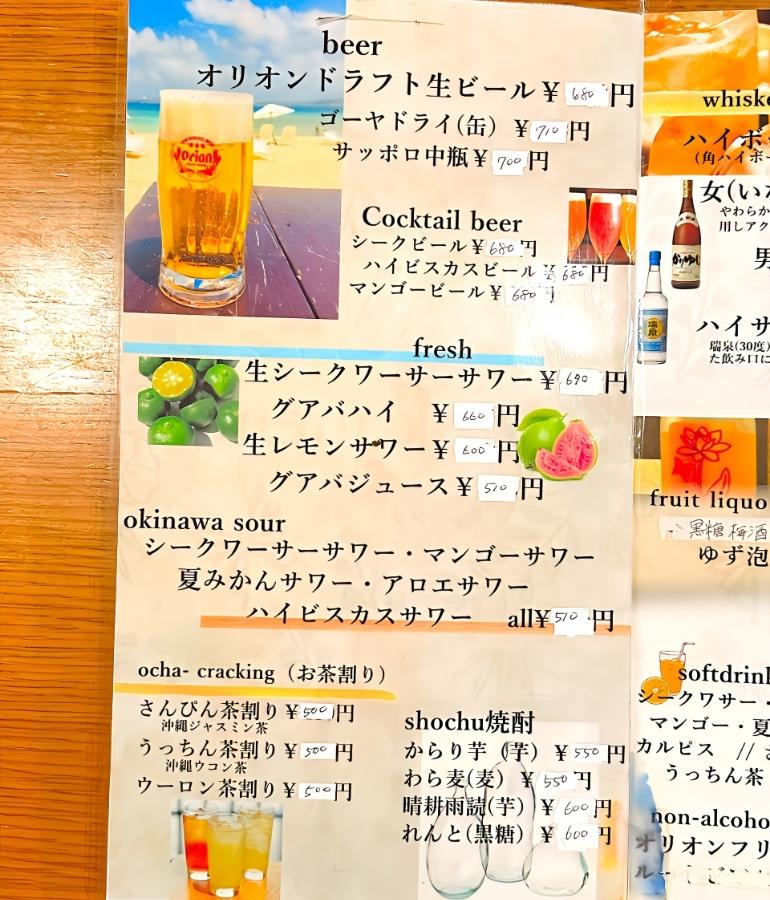 beer
オリオンドラフト生ビール ¥ 680 円
Orion
ゴーヤドライ(缶) ¥ 710 円
サッポロ中瓶 ¥ 700 円
Cocktail beer
シークビール ¥ 680 円
ハイビスカスビール ¥ 680 円
マンゴービール ¥ 680 円
fresh
生シークワーサーサワー ¥ 690 円
グアバハイ ¥ 660 円
生レモンサワー ¥ 600 円
グアバジュース ¥ 510 円
okinawa sour
シークワーサーサワー・マンゴーサワー
夏みかんサワー・アロエサワー
ハイビスカスサワー all¥ 510 円
ocha- cracking (お茶割り)
さんぴん茶割り ¥ 500 円
沖縄ジャスミン茶
うっちん茶割り ¥ 500 円
沖縄ウコン茶
ウーロン茶割り ¥ 500 円
shochu焼酎
からり芋 (芋) ¥ 550 円
わら麦(麦) ¥ 550 円
晴耕雨読(芋) ¥ 600 円
れんと(黒糖) ¥ 600 円
whiske
ハイボ
(角ハイボー
女(い
やわらか
用しアク
男
ハイサ
瑞泉(30度)
た飲み口に
瑞泉
fruit liquo
黒糖梅酒
ゆず泡
softdrink
シークワサー・
マンゴー・夏
カルピス //
うっちん茶
non-alcoho
オリオンフリ